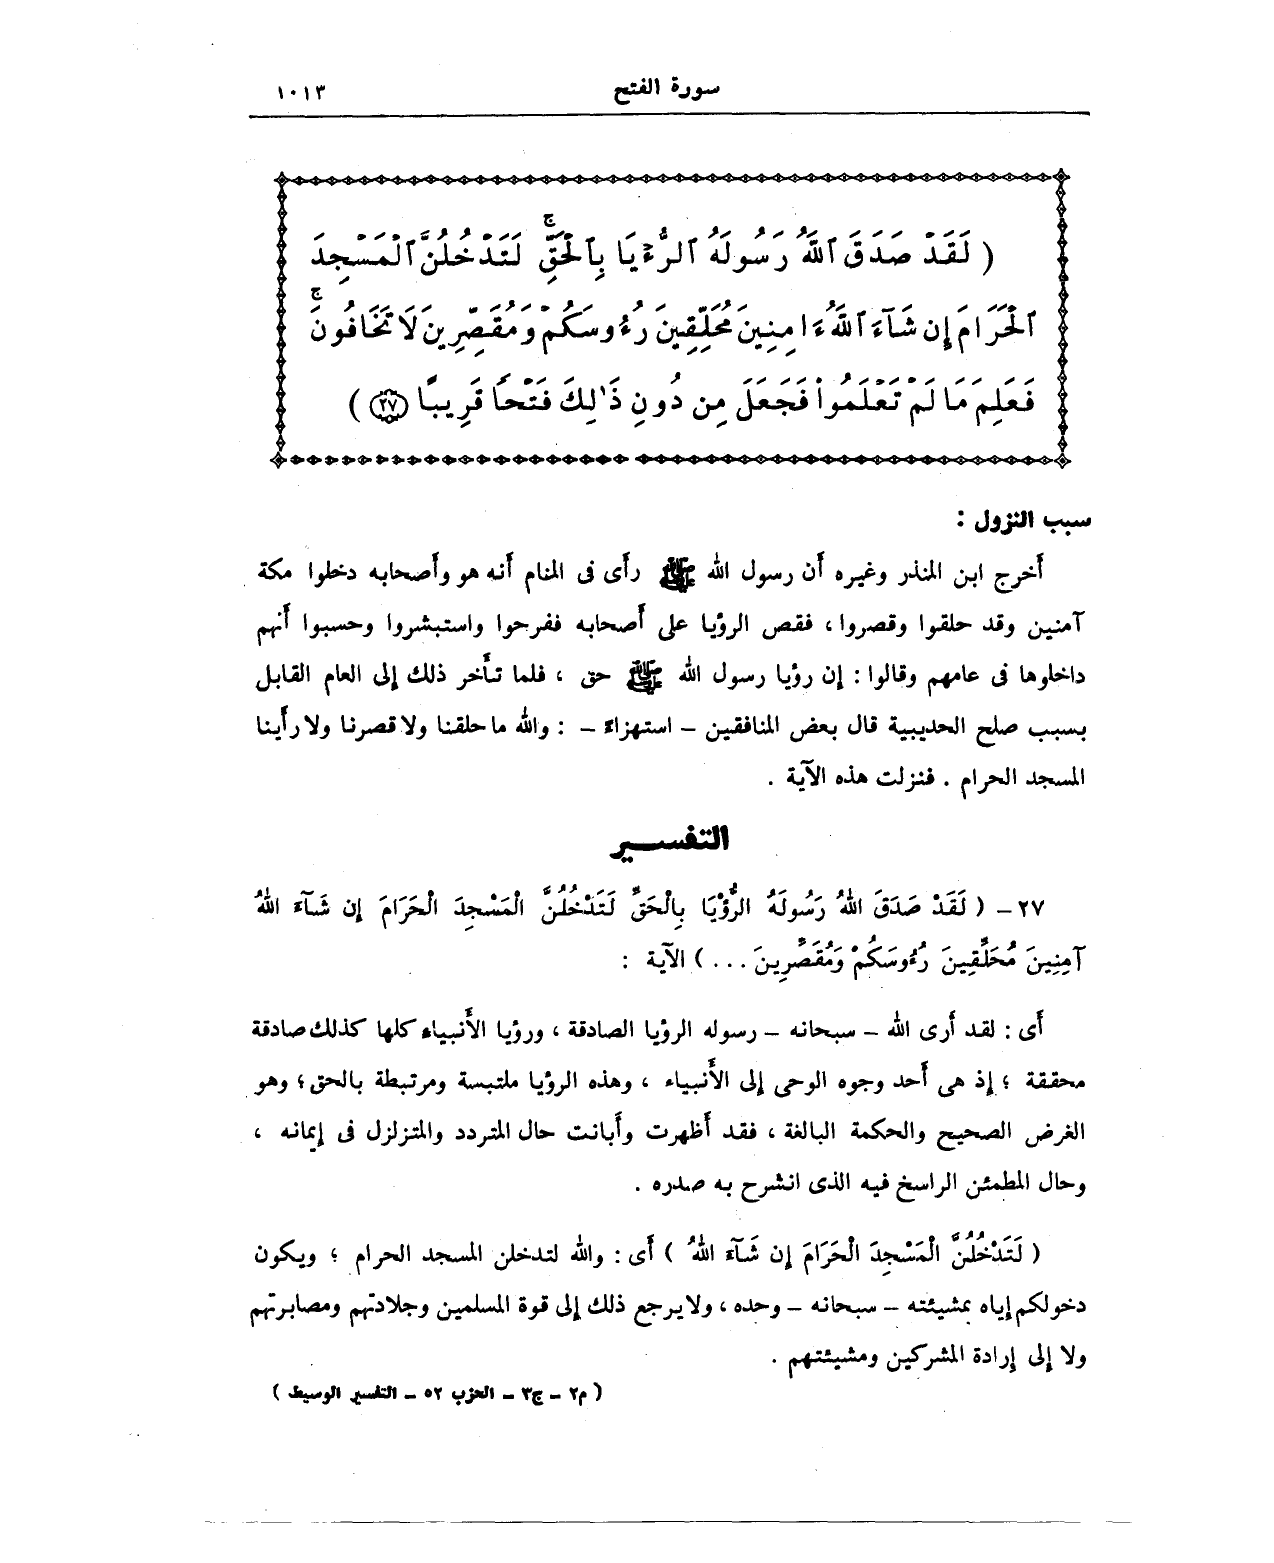 سورة الفتح ١٠١٣
( لَقَدْ صَدَقَ ٱللَّهُ رَسُولَهُ ٱلرُّءْيَا بِٱلْحَقِّۖ لَتَدْخُلُنَّ ٱلْمَسْجِدَ
ٱلْحَرَامَ إِن شَآءَ ٱللَّهُ ءَامِنِينَ مُحَلِّقِينَ رُءُوسَكُمْ وَمُقَصِّرِينَ لَا تَخَافُونَۖ
فَعَلِمَ مَا لَمْ تَعْلَمُوا۟ فَجَعَلَ مِن دُونِ ذَٰلِكَ فَتْحًا قَرِيبًا ٢٧ )
سبب النزول :
أخرج ابن المنذر وغيره أن رسول الله ﷺ رأى فى المنام أنه هو وأصحابه دخلوا مكة
آمنين وقد حلقوا وقصروا، فقص الرؤيا على أصحابه ففرحوا واستبشروا وحسبوا أنهم
داخلوها فى عامهم وقالوا : إن رؤيا رسول الله ﷺ حق ، فلما تأخر ذلك إلى العام القابل
بسبب صلح الحديبية قال بعض المنافقين – استهزاءً – : والله ما حلقنا ولا قصرنا ولا رأينا
المسجد الحرام . فنزلت هذه الآية .
التفسير
٢٧ – ( لَقَدْ صَدَقَ اللهُ رَسُولَهُ الرُّؤْيَا بِالْحَقِّ لَتَدْخُلُنَّ الْمَسْجِدَ الْحَرَامَ إِن شَآءَ اللهُ
آمِنِينَ مُحَلِّقِينَ رُءُوسَكُمْ وَمُقَصِّرِينَ ... ) الآية :
أى : لقد أرى الله – سبحانه – رسوله الرؤيا الصادقة ، ورؤيا الأنبياء كلها كذلك صادقة
محققة ؛ إذ هى أحد وجوه الوحى إلى الأنبياء ، وهذه الرؤيا ملتبسة ومرتبطة بالحق ؛ وهو
الغرض الصحيح والحكمة البالغة ، فقد أظهرت وأبانت حال المتردد والمتزلزل فى إيمانه ،
وحال المطمئن الراسخ فيه الذى انشرح به صدره .
( لَتَدْخُلُنَّ الْمَسْجِدَ الْحَرَامَ إِن شَآءَ اللهُ ) أى : والله لتدخلن المسجد الحرام ؛ ويكون
دخولكم إياه بمشيئته – سبحانه – وحده ، ولا يرجع ذلك إلى قوة المسلمين وجلادتهم ومصابرتهم
ولا إلى إرادة المشركين ومشيئتهم .
( م٢ – ج٣ – الحزب ٥٢ – التفسير الوسيط )